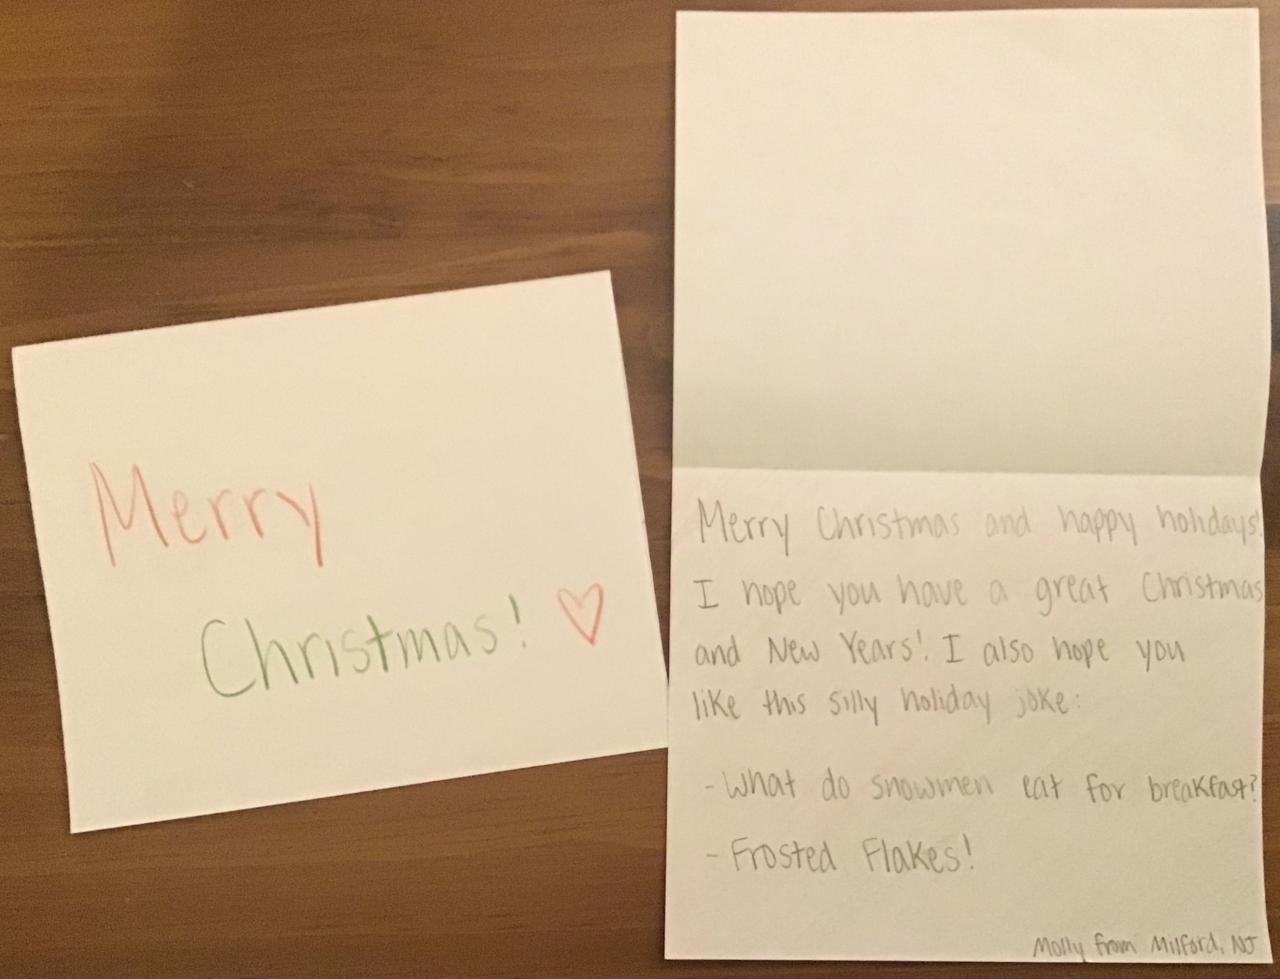 Merry
Christmas! ♡
Merry Christmas and happy holidays!
I hope you have a great Christmas
and New Years! I also hope you
like this silly holiday joke:
- What do snowmen eat for breakfast?
- Frosted Flakes!
Molly from Milford, NJ